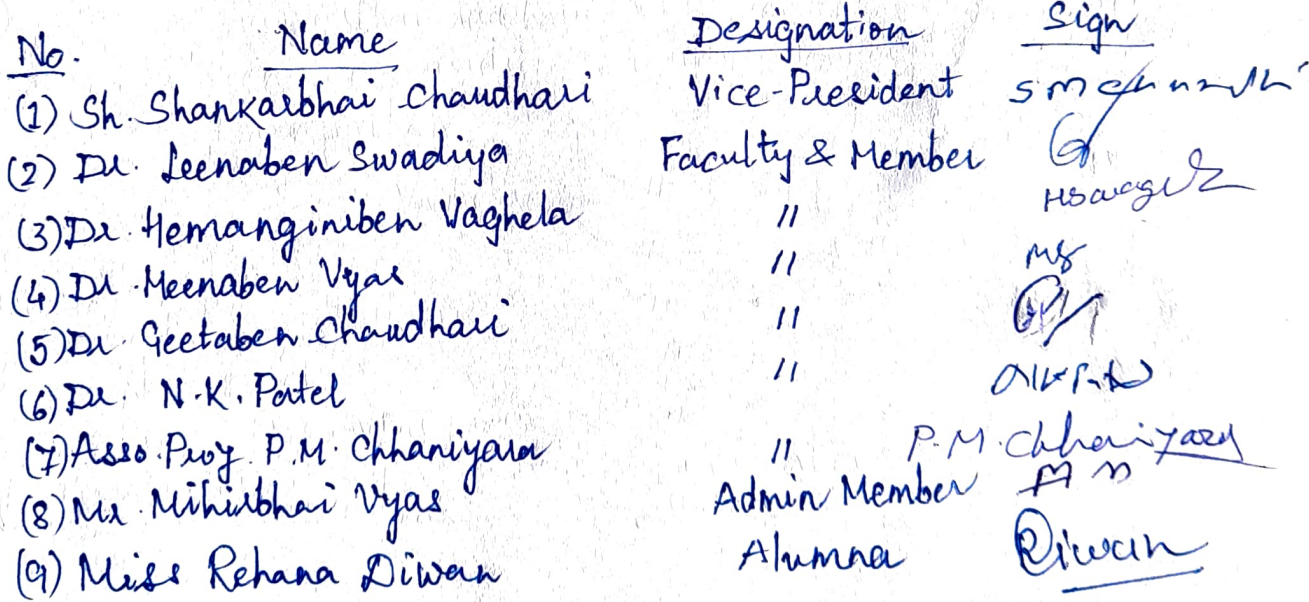 No. Name Designation Sign
(1) Sh. Shankarbhai Chaudhari Vice-President
(2) Dr. Leenaben Swadiya Faculty & Member
(3) Dr. Hemanginiben Vaghela "
(4) Dr. Meenaben Vyas "
(5) Dr. Geetaben Chaudhari "
(6) Dr. N.K. Patel "
(7) Asso. Prof. P.M. Chhaniyara " P.M. Chhaniyara
(8) Mr. Mihirbhai Vyas Admin Member
(9) Miss Rehana Diwan Alumna Diwan